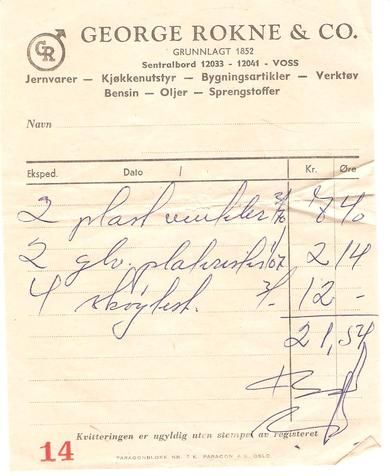 GR
GEORGE ROKNE & CO.
GRUNNLAGT 1852
Sentralbord 12033 - 12041 - VOSS
Jernvarer — Kjøkkenutstyr — Bygningsartikler — Verktøy
Bensin — Oljer — Sprengstoffer
Navn
Eksped. Dato / Kr. Øre
2 plast 8 40
2 glv. 1,07 2 14
4 3/- 12 -
21,54
Kvitteringen er ugyldig uten stempel av registeret
14
PARAGONBLOKK NR. 7 K. PARAGON A.S. OSLO